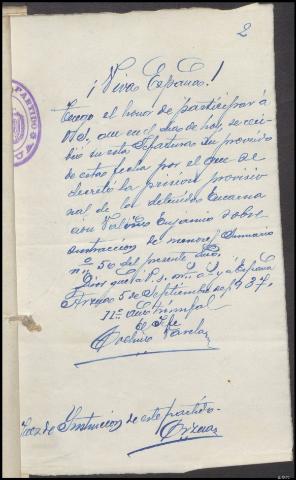 2
¡Viva España!
Tengo el honor de participar á
Vd. que en el dia de hoy, se reci-
bió en esta Jefatura su proveido
de esta fecha por el que se
decretó la prision provisio
nal de los detenidos Encarna
cion Valides Eugenio sobre
sustracción de menor, Sumario
nº 50 del presente año.
Dios gue á V. S. m. a. y á España
Arenas 5 de Septiembre de 1937.
IIº. Año triunfal
El Jefe
Juez de Instrucion de este partido.
Arenas
PARTIDO